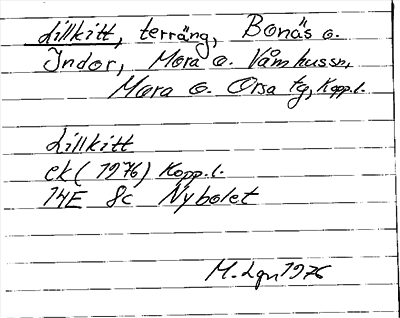 Lillkitt, terräng, Bonäs o.
Indor, Mora o. Våmhussn,
Mora o. Orsa tg, Kopp.l.
Lillkitt
ek (1976) Kopp.l.
14E 8c Nybolet
M. Lgn 1976